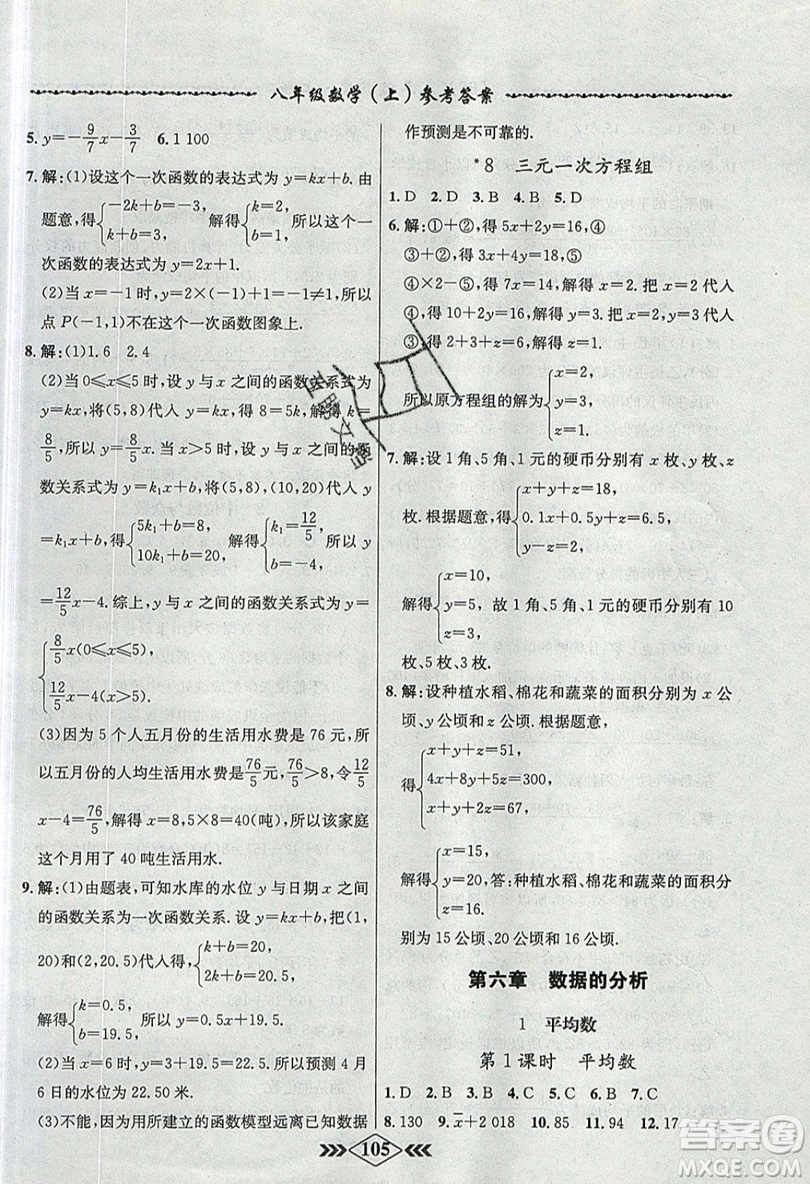 八年级数学(上)参考答案
5. y=-9/7x-3/7  6. 1 100
7. 解:(1)设这个一次函数的表达式为 y=kx+b. 由
题意,得{-2k+b=-3, k+b=3, 解得{k=2, b=1, 所以这个一
次函数的表达式为 y=2x+1.
(2)当 x=-1 时,y=2×(-1)+1=-1≠1,所以
点 P(-1,1)不在这个一次函数图象上.
8. 解:(1)1.6  2.4
(2)当 0≤x≤5 时,设 y 与 x 之间的函数关系式为
y=kx,将(5,8)代人 y=kx,得 8=5k,解得 k=
8/5,所以 y=8/5x. 当 x>5 时,设 y 与 x 之间的函
数关系式为 y=k₁x+b,将(5,8),(10,20)代人 y
=k₁x+b,得{5k₁+b=8, 10k₁+b=20, 解得{k₁=12/5, b=-4. 所以 y
=12/5x-4. 综上,y 与 x 之间的函数关系式为 y=
{8/5x(0≤x≤5),
12/5x-4(x>5).
(3)因为 5 个人五月份的生活用水费是 76 元,所
以五月份的人均生活用水费是76/5元,76/5>8,令12/5
x-4=76/5,解得 x=8,5×8=40(吨),所以该家庭
这个月用了 40 吨生活用水.
9. 解:(1)由题表,可知水库的水位 y 与日期 x 之间
的函数关系为一次函数关系. 设 y=kx+b,把(1,
20)和(2,20.5)代人,得{k+b=20, 2k+b=20.5,
解得{k=0.5, b=19.5. 所以 y=0.5x+19.5.
(2)当 x=6 时,y=3+19.5=22.5. 所以预测 4 月
6 日的水位为 22.50 米.
(3)不能,因为用所建立的函数模型远离已知数据
作预测是不可靠的.
*8  三元一次方程组
1. D  2. D  3. B  4. B  5. D
6. 解:①+②,得 5x+2y=16,④
③+②,得 3x+4y=18,⑤
④×2-⑤,得 7x=14,解得 x=2. 把 x=2 代人
④,得 10+2y=16,解得 y=3. 把 x=2,y=3 代人
③,得 2+3+z=6,解得 z=1.
所以原方程组的解为{x=2, y=3, z=1.
7. 解:设 1 角、5 角、1 元的硬币分别有 x 枚、y 枚、z
枚. 根据题意,得{x+y+z=18, 0.1x+0.5y+z=6.5, y+z=8,
解得{x=10, y=5, z=3. 故 1 角、5 角、1 元的硬币分别有 10
枚、5 枚、3 枚.
8. 解:设种植水稻、棉花和蔬菜的面积分别为 x 公
顷、y 公顷和 z 公顷. 根据题意,
得{x+y+z=51, 4x+8y+5z=300, x+y+2z=67,
解得{x=15, y=20, z=16. 答:种植水稻、棉花和蔬菜的面积分
别为 15 公顷、20 公顷和 16 公顷.
第六章  数据的分析
1  平均数
第 1 课时  平均数
1. D  2. B  3. B  4. C  5. C  6. B  7. C
8. 130  9. x̄+2 018  10. 85  11. 92  12. 17
105
答案圈
MXQE.COM